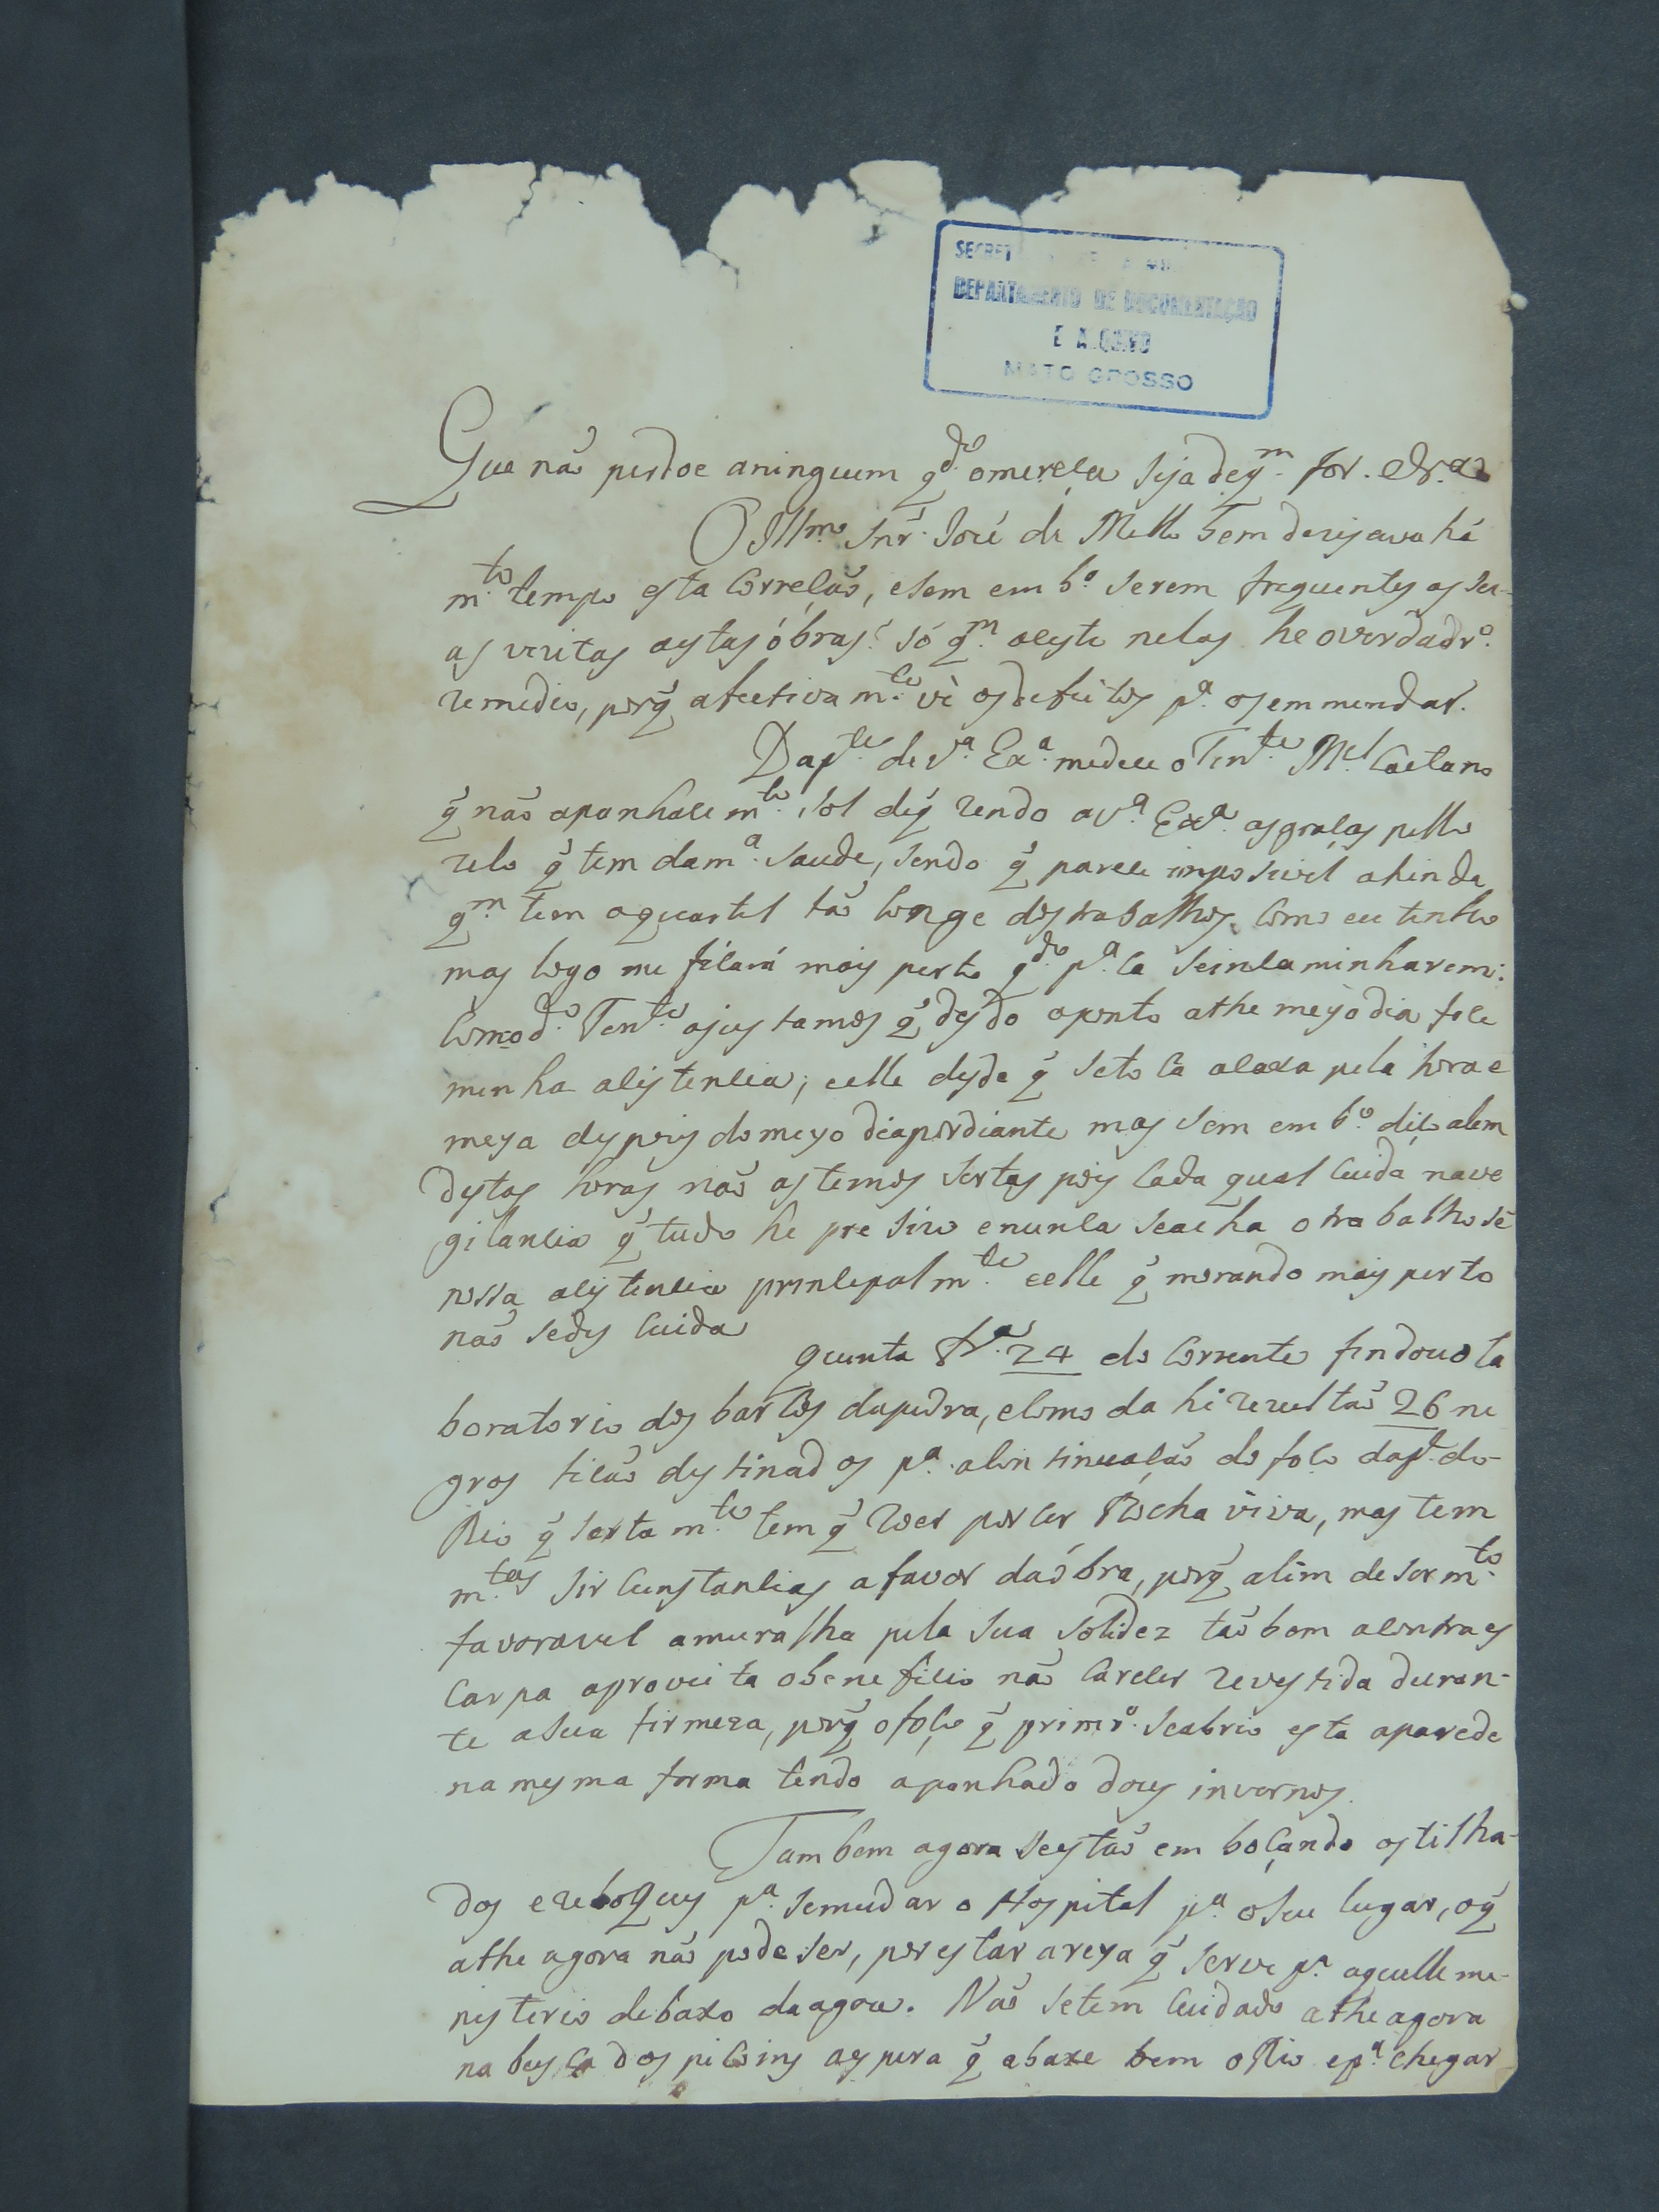 SECRET
DEPARTAMENTO DE DOCUMENTAÇÃO
E A.QUIVO
MATO GROSSO
Que naõ perdoe aninguem q.do omereça seja deq.m for.
O Ill.mo Snr. José de Mello bem dezejava há
m.to tempo esta Correçaõ, esem em b.o serem frequentes as su-
as vizitas aestas óbras: só q.m aceste nelas he overdadr.o
remedio, porq̃ afectivam.te vê osdefeitos p.a osemmendar.
Dap.te de V.a Ex.a medice oTen.te M.el Caetano
q̃ naõ apanhace m.to sol deq̃ rendo aV.a Ex.a asgraças pello
zelo q̃ tem dam.a saude, sendo q̃ parece imposivel ahinda
q.m tem oquartel taõ longe dostrabalhos Como eu tenho
mas logo me ficará mais perto q.do p.a ca seincaminharem:
Comod.o Ten.te ajustamos q̃ desdo aponto athe meyodia foce
minha acistencia; eelle desde q̃ setoca acaxa pela hora e
meya despois domeyo diapordiante mas sem em b.o diço alem
destas horas naõ astemos sertas pois Cada qual Cuida nave
gilancia q̃ tudo he preSizo enunca seacha otrabalho sẽ
nossa acistencia principalm.te eelle q̃ morando mais perto
naõ sedes Cuida
quinta fr.a 24 do Corrente findouo la
boratorio dos barCos dapedra, eComo dahi rezultaõ 26 ne
gros ficaõ destinados p.a aContinuaçaõ do foço dap.te do-
Rio q̃ sertam.te tem q̃ roer por ser Rocha viva, mas tem
m.tas sirCunstancias afavor daóbra, porq̃ alem de ser m.to
favoravel amuralha pela sua solidez taõbem aContraes
Carpa aproveita obeneficio naõ Carecer revestida duran-
te asua firmeza, porq̃ ofoço q̃ primr.o seabrio esta aparede
na mesma forma tendo apanhado dous invernos.
Tambem agora seestaõ em boçando ostilha-
dos erreboques p.a semudar o Hospital p.a oseu lugar, oq̃
athe agora naõ pode ser, por estar areya q̃ serve p.a aquelle me-
nisterio debaxo daagoa. Naõ setem Cuidado atheagora
na busCa dos piloins aespera q̃ abaxe bem oRio ep.a chegar